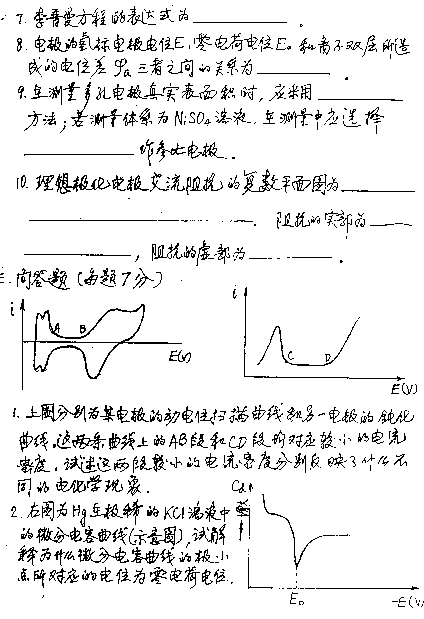 7. 李普曼方程的表达式为____________。
8. 电极的氢标电极电位E，零电荷电位E₀和离子双层所造
成的电位差φa三者之间的关系为__________。
9. 在测量多孔电极真实表面积时，应采用__________
方法；若测量体系为NiSO₄溶液，在测量中应选择
______________作参比电极。
10. 理想极化电极交流阻抗的复数平面图为________
______________________________. 阻抗的实部为_____
______________，阻抗的虚部为__________。
问答题（每题7分）
i A B E(V)
i C D E(V)
1. 上图分别为某电极的动电位扫描曲线和另一电极的钝化
曲线，这两条曲线上的AB段和CD段均对应较小的电流
密度，试述这两段较小的电流密度分别反映了什么不
同的电化学现象．
2. 右图为Hg在极稀的KCl溶液中
的微分电容曲线(示意图)，试解
释为什么微分电容曲线的极小
点所对应的电位为零电荷电位．
Cd
E₀ -E(V)